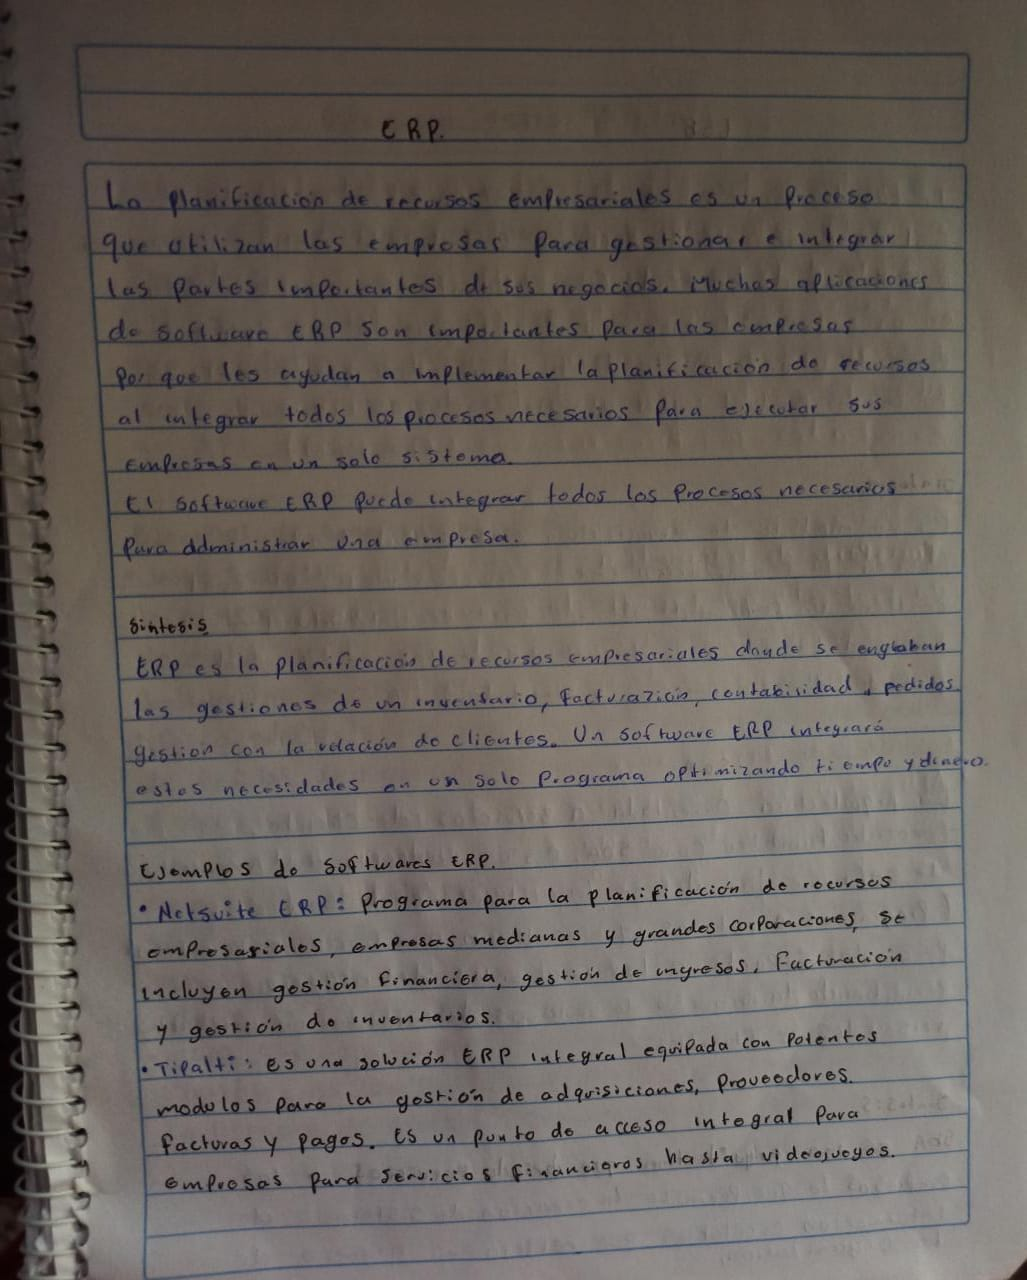 ERP.
La planificación de recursos empresariales es un proceso
que utilizan las empresas para gestionar e integrar
las partes importantes de sus negocios. Muchas aplicaciones
de software ERP son importantes para las empresas
por que les ayudan a implementar la planificación de recursos
al integrar todos los procesos necesarios para ejecutar sus
empresas en un solo sistema.
El software ERP puede integrar todos los procesos necesarios
para administrar una empresa.
Síntesis
ERP es la planificación de recursos empresariales donde se engloban
las gestiones de un inventario, facturazición, contabilidad, pedidos
gestion con la relación de clientes. Un software ERP integrará
estas necesidades en un solo programa optimizando tiempo y dinero.
Ejemplos de softwares ERP.
• Netsuite ERP: Programa para la planificación de recursos
empresariales, empresas medianas y grandes corporaciones, se
incluyen gestión financiera, gestión de ingresos, facturación
y gestión de inventarios.
• Tipalti: es una solución ERP integral equipada con potentes
modulos para la gestión de adquisiciones, proveedores.
facturas y pagos. Es un punto de acceso integral para
empresas para servicios financieros hasta videojuegos.